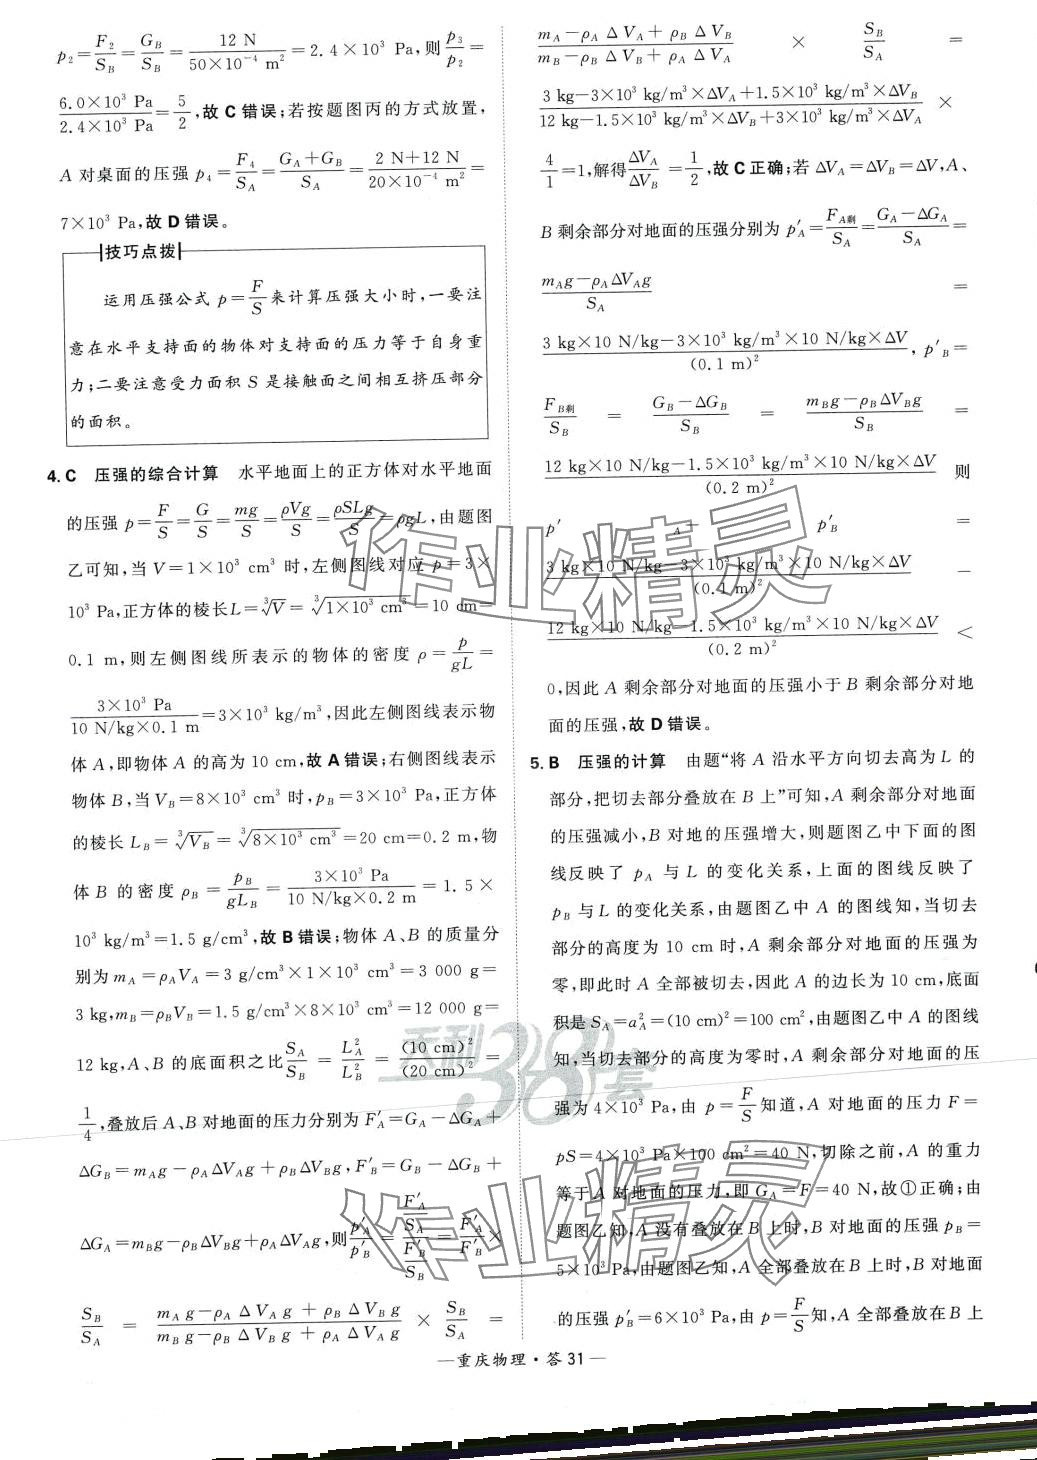 p₂=F₂/S_B=G_B/S_B=12 N/(50×10⁻⁴ m²)=2.4×10³ Pa,则p₃/p₂=
(6.0×10³ Pa)/(2.4×10³ Pa)=5/2,故 C 错误;若按题图丙的方式放置,
A 对桌面的压强 p₄=F₄/S_A=(G_A+G_B)/S_A=(2 N+12 N)/(20×10⁻⁴ m²)=
7×10³ Pa,故 D 错误。
技巧点拨
运用压强公式 p=F/S来计算压强大小时,一要注
意在水平支持面的物体对支持面的压力等于自身重
力;二要注意受力面积 S 是接触面之间相互挤压部分
的面积。
4. C 压强的综合计算 水平地面上的正方体对水平地面
的压强 p=F/S=G/S=mg/S=ρVg/S=ρSLg/S=ρgL,由题图
乙可知,当 V=1×10³ cm³ 时,左侧图线对应 p=3×
10³ Pa,正方体的棱长L=∛V=∛(1×10³ cm³)=10 cm=
0.1 m,则左侧图线所表示的物体的密度 ρ=p/(gL)=
(3×10³ Pa)/(10 N/kg×0.1 m)=3×10³ kg/m³,因此左侧图线表示物
体 A,即物体 A 的高为 10 cm,故 A 错误;右侧图线表示
物体 B,当 V_B=8×10³ cm³ 时,p_B=3×10³ Pa,正方体
的棱长 L_B=∛V_B=∛(8×10³ cm³)=20 cm=0.2 m,物
体 B 的密度 ρ_B=p_B/(gL_B)=(3×10³ Pa)/(10 N/kg×0.2 m)=1.5×
10³ kg/m³=1.5 g/cm³,故 B 错误;物体 A、B 的质量分
别为 m_A=ρ_AV_A=3 g/cm³×1×10³ cm³=3 000 g=
3 kg,m_B=ρ_BV_B=1.5 g/cm³×8×10³ cm³=12 000 g=
12 kg,A、B 的底面积之比S_A/S_B=L_A²/L_B²=(10 cm)²/(20 cm)²=
1/4,叠放后 A、B 对地面的压力分别为 F′_A=G_A-ΔG_A+
ΔG_B=m_Ag-ρ_AΔV_Ag+ρ_BΔV_Bg,F′_B=G_B-ΔG_B+
ΔG_A=m_Bg-ρ_BΔV_Bg+ρ_AΔV_Ag,则p′_A/p′_B=(F′_A/S_A)/(F′_B/S_B)=F′_A/F′_B×
S_B/S_A=(m_Ag-ρ_AΔV_Ag+ρ_BΔV_Bg)/(m_Bg-ρ_BΔV_Bg+ρ_AΔV_Ag)×S_B/S_A=
(m_A-ρ_AΔV_A+ρ_BΔV_B)/(m_B-ρ_BΔV_B+ρ_AΔV_A)×S_B/S_A=
(3 kg-3×10³ kg/m³×ΔV_A+1.5×10³ kg/m³×ΔV_B)/(12 kg-1.5×10³ kg/m³×ΔV_B+3×10³ kg/m³×ΔV_A)×
4/1=1,解得ΔV_A/ΔV_B=1/2,故 C 正确;若 ΔV_A=ΔV_B=ΔV,A、
B 剩余部分对地面的压强分别为 p′_A=F_A剩/S_A=(G_A-ΔG_A)/S_A=
(m_Ag-ρ_AΔV_Ag)/S_A=
(3 kg×10 N/kg-3×10³ kg/m³×10 N/kg×ΔV)/(0.1 m)²,p′_B=
F_B剩/S_B=(G_B-ΔG_B)/S_B=(m_Bg-ρ_BΔV_Bg)/S_B=
(12 kg×10 N/kg-1.5×10³ kg/m³×10 N/kg×ΔV)/(0.2 m)² 则
p′_A-p′_B=
(3 kg×10 N/kg-3×10³ kg/m³×10 N/kg×ΔV)/(0.1 m)²-
(12 kg×10 N/kg-1.5×10³ kg/m³×10 N/kg×ΔV)/(0.2 m)²<
0,因此 A 剩余部分对地面的压强小于 B 剩余部分对地
面的压强,故 D 错误。
5. B 压强的计算 由题“将 A 沿水平方向切去高为 L 的
部分,把切去部分叠放在 B 上”可知,A 剩余部分对地面
的压强减小,B 对地的压强增大,则题图乙中下面的图
线反映了 p_A 与 L 的变化关系,上面的图线反映了
p_B 与 L 的变化关系,由题图乙中 A 的图线知,当切去
部分的高度为 10 cm 时,A 剩余部分对地面的压强为
零,即此时 A 全部被切去,因此 A 的边长为 10 cm,底面
积是 S_A=a_A²=(10 cm)²=100 cm²,由题图乙中 A 的图线
知,当切去部分的高度为零时,A 剩余部分对地面的压
强为 4×10³ Pa,由 p=F/S知道,A 对地面的压力 F=
pS=4×10³ Pa×100 cm²=40 N,切除之前,A 的重力
等于 A 对地面的压力,即 G_A=F=40 N,故①正确;由
题图乙知,A 没有叠放在 B 上时,B 对地面的压强 p_B=
5×10³ Pa,由题图乙知,A 全部叠放在 B 上时,B 对地面
的压强 p′_B=6×10³ Pa,由 p=F/S知,A 全部叠放在 B 上
—重庆物理·答 31—
作业精灵
天利38套
作业精灵